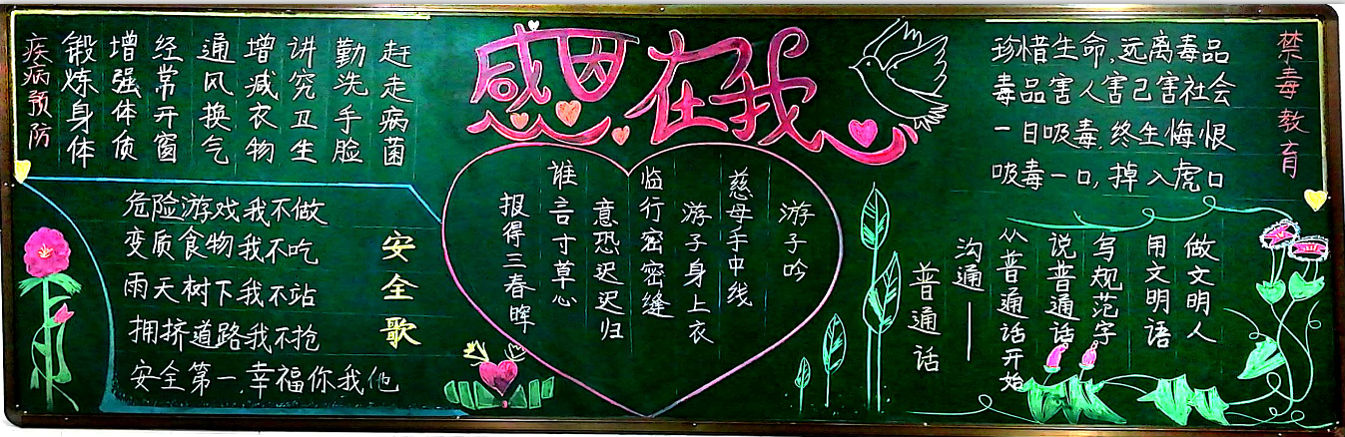 感恩在我
疾病预防
锻炼身体
增强体质
经常开窗
通风换气
增减衣物
讲究卫生
勤洗手脸
赶走病菌
安全歌
危险游戏我不做
变质食物我不吃
雨天树下我不站
拥挤道路我不抢
安全第一,幸福你我他
游子吟
慈母手中线
游子身上衣
临行密密缝
意恐迟迟归
谁言寸草心
报得三春晖
禁毒教育
珍惜生命,远离毒品
毒品害人害己害社会
一日吸毒,终生悔恨
吸毒一口,掉入虎口
普通话
沟通——
从普通话开始
说普通话
写规范字
用文明语
做文明人